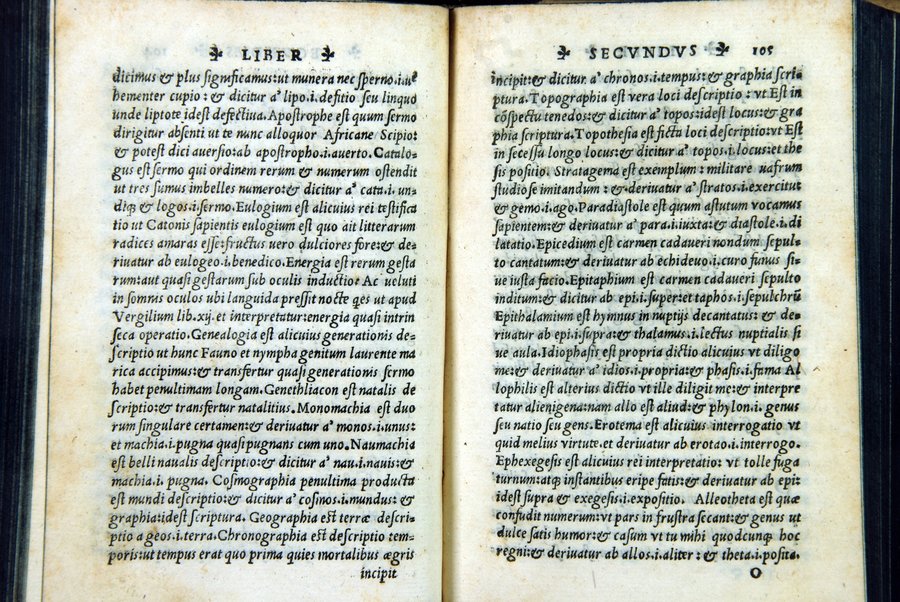 LIBER
dicimus & plus significamus:ut munera nec sperno.i.ue
hementer cupio : & dicitur a' lipo.i.defitio seu linquo
unde liptote idest defectiua.Apostrophe est quum sermo
dirigitur absenti ut te nunc alloquor Africane Scipio:
& potest dici auersio:ab apostropho.i.auerto. Catalo-
gus est sermo qui ordinem rerum & numerum ostendit
ut tres sumus imbelles numero:& dicitur a' cata.i. un-
diq; & logos.i.sermo.Eulogium est alicuius rei testifica
tio ut Catonis sapientis eulogium est quo ait litterarum
radices amaras esse:fructus uero dulciores fore:& de-
riuatur ab eulogeo.i.benedico.Energia est rerum gesta
rum:aut quasi gestarum sub oculis inductio: Ac ueluti
in somnis oculos ubi languida pressit nocte q̃es ut apud
Vergilium lib.xij.et interpretatur:energia quasi intrin
seca operatio.Genealogia est alicuius generationis de-
scriptio ut hunc Fauno et nympha genitum laurente ma
rica accipimus:& transfertur quasi generationis sermo
habet penultimam longam.Genethliacon est natalis de
scriptio:& transfertur natalitius. Monomachia est duo
rum singulare certamen:& deriuatur a' monos.i.unus:
et machia.i.pugna quasi pugnans cum uno.Naumachia
est belli naualis descriptio:& dicitur a' nau.i.nauis:&
machia.i. pugna. Cosmographia penultima producta
est mundi descriptio:& dicitur a' cosmos.i.mundus: &
graphia:idest scriptura. Geographia est terræ descri-
ptio a geos.i.terra.Chronographia est descriptio tem-
poris:ut tempus erat quo prima quies mortalibus ægris
incipit
SECVNDVS 105
incipit:& dicitur a' chronos.i.tempus:& graphia scri-
ptura.Topographia est vera loci descriptio : vt Est in
cõspectu tenedos:& dicitur a' topos:idest locus:& gra
phia scriptura.Topothesia est ficta loci descriptio:vt Est
in secessu longo locus:& dicitur a' topos.i.locus:et the
sis positio. Stratagema est exemplum : militare uafrum
studiose imitandum : & deriuatur a' stratos.i.exercitus
& gemo.i.ago.Paradiastole est quum astutum vocamus
sapientem:& deriuatur a' para.i.iuxta:& diastole.i.di
latatio.Epicedium est carmen cadaueri nondum sepul-
to cantatum:& deriuatur ab echideuo.i.curo funus si-
ue iusta facio.Epitaphium est carmen cadaueri sepulto
inditum:& dicitur ab epi.i.super:et taphos.i.sepulchrũ
Epithalamium est hymnus in nuptijs decantatus: & de-
riuatur ab epi.i.supra:& thalamus.i.lectus nuptialis si
ue aula.Idiophasis est propria dictio alicuius vt diligo
me:& deriuatur a' idios.i.propria:& phasis.i.fama Al
lophilis est alterius dictio vt ille diligit me:& interpre
tatur alienigena:nam allo est aliud:& phylon.i. genus
seu natio seu gens.Erotema est alicuius interrogatio vt
quid melius virtute.et deriuatur ab erotao.i.interrogo.
Ephexegesis est alicuius rei interpretatio: vt tolle fuga
turnum:atq; instantibus eripe fatis:& deriuatur ab epi:
idest supra & exegesis.i.expositio. Alleotheta est quæ
confudit numerum:vt pars in frustra secant:& genus ut
dulce satis humor:& casum vt tu mihi quodcunq; hoc
regni:& deriuatur ab allos.i.aliter : & theta.i.posita.
O